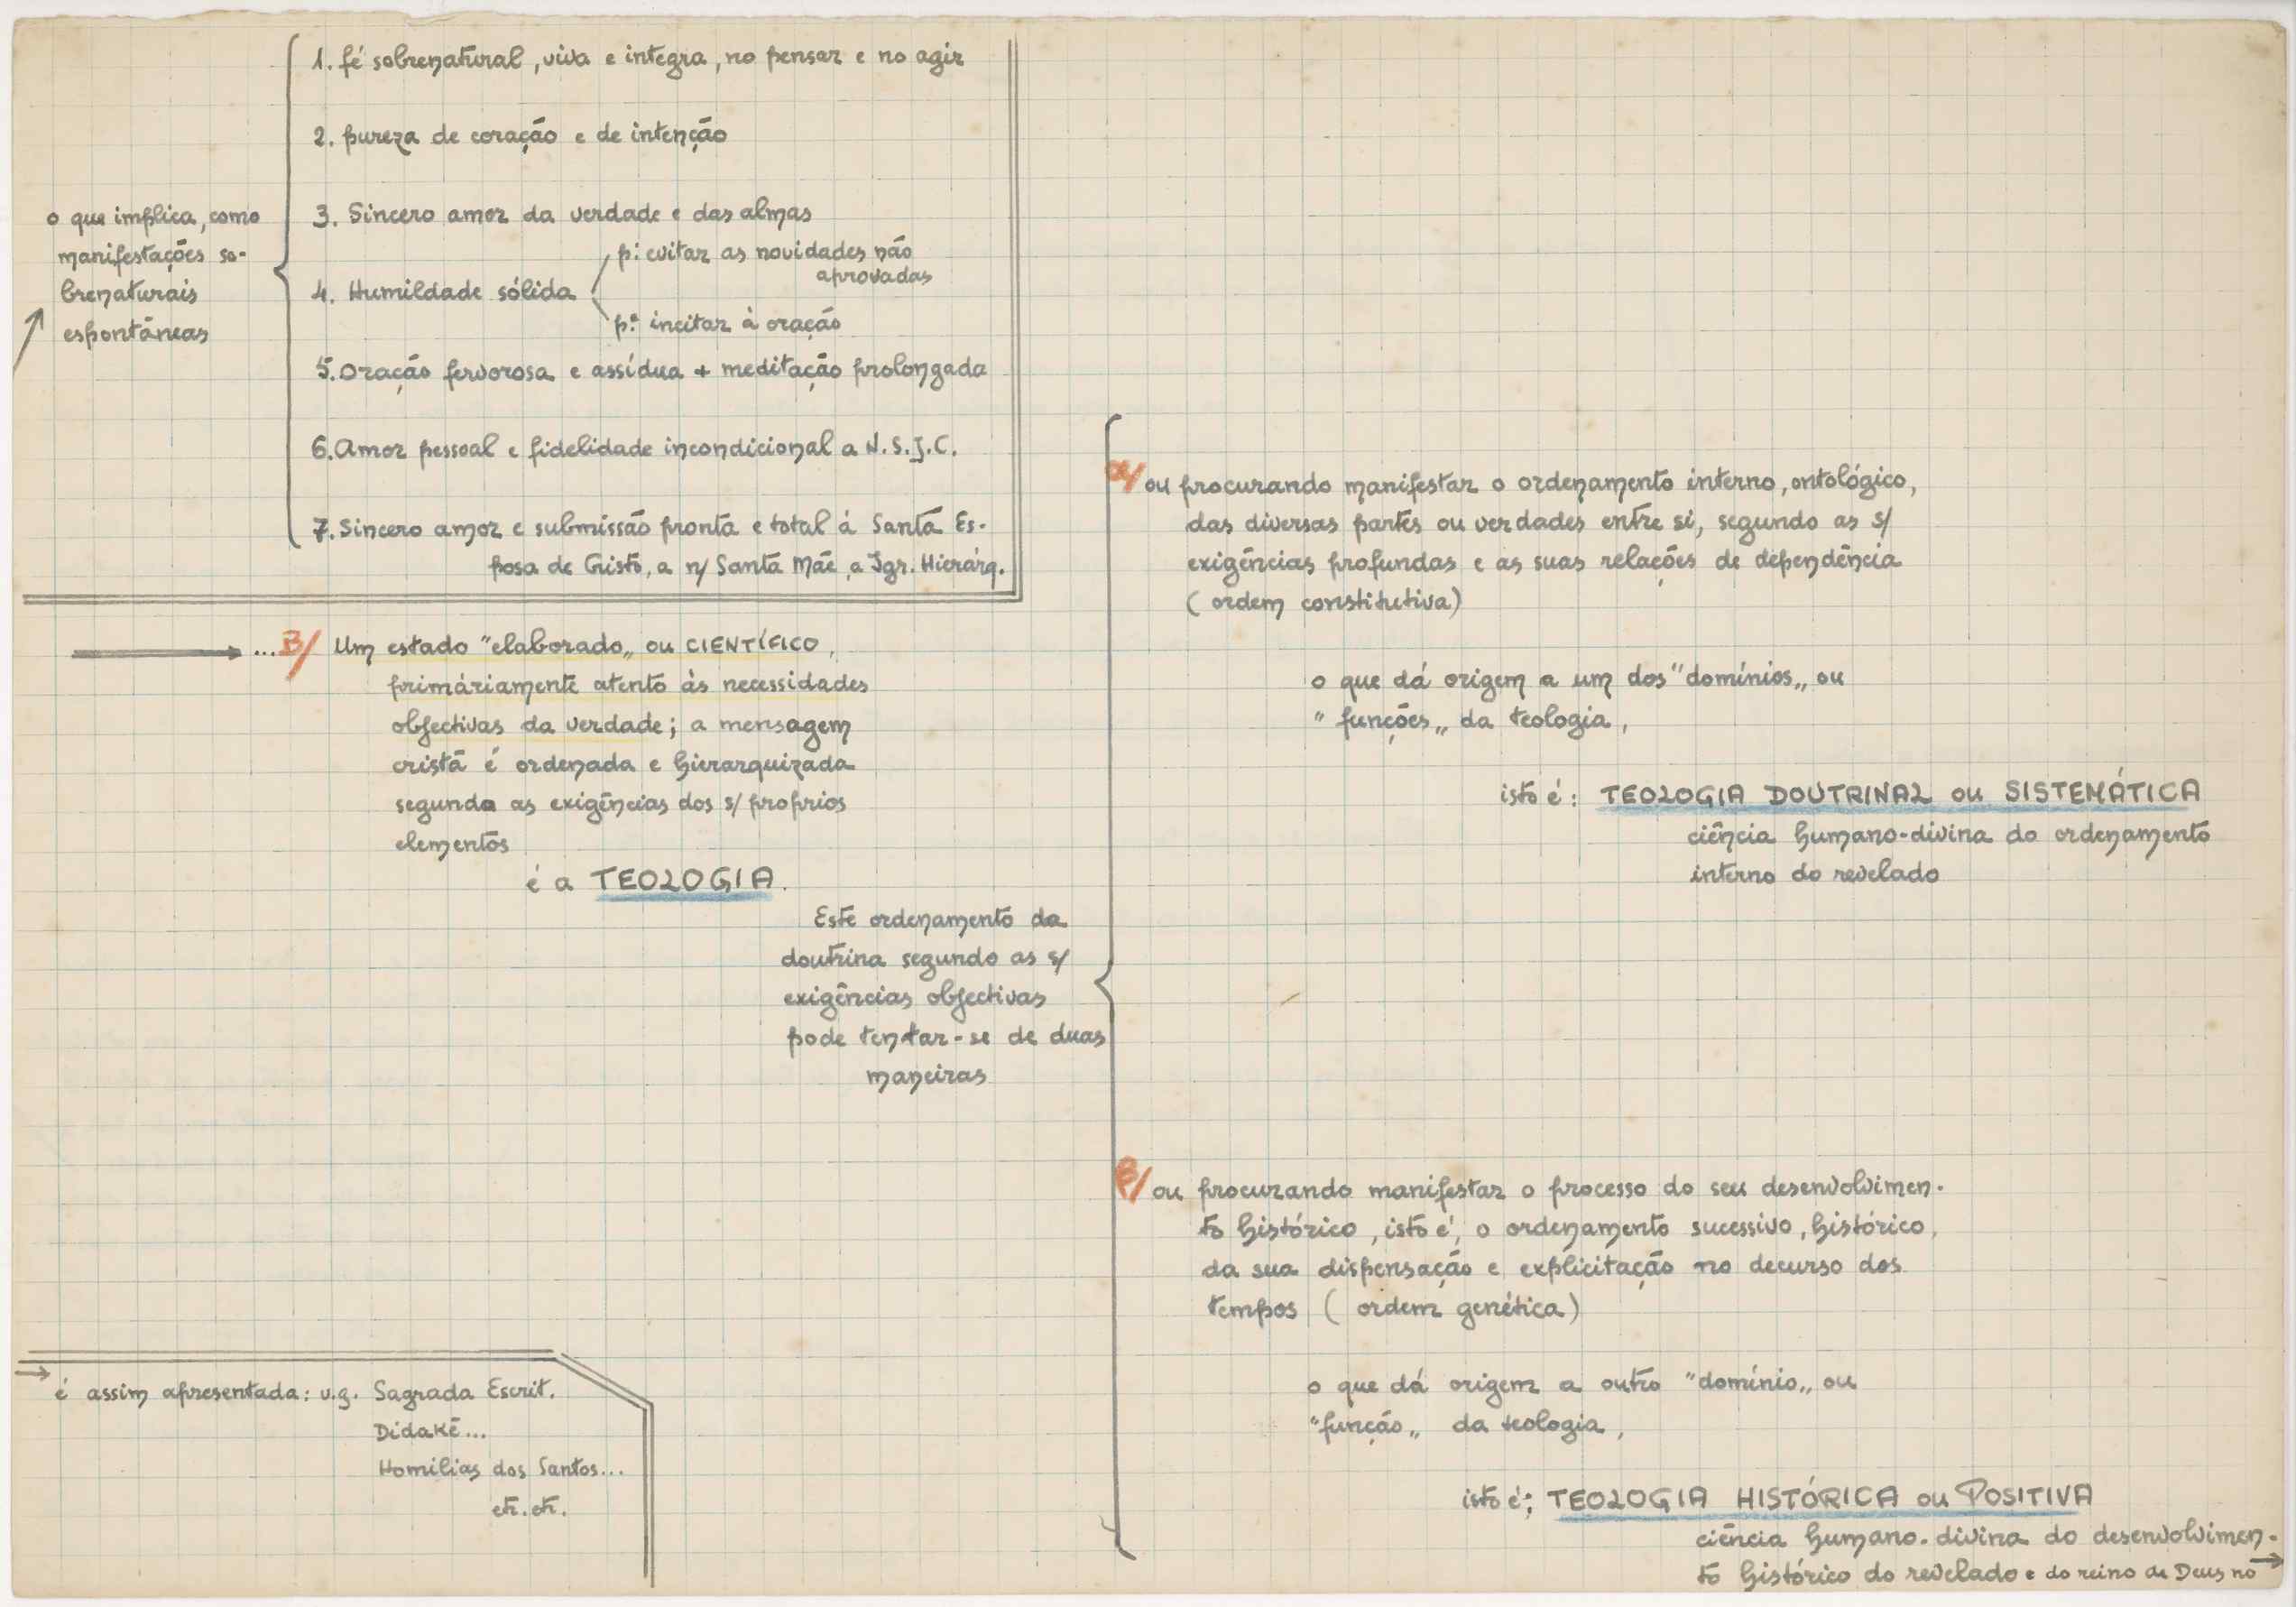 o que implica, como
manifestações so-
brenaturais
espontâneas
1. fé sobrenatural, viva e integra, no pensar e no agir
2. pureza de coração e de intenção
3. Sincero amor da verdade e das almas
4. Humildade sólida
pª: evitar as novidades não
aprovadas
pª: incitar à oração
5. Oração fervorosa e assídua + meditação prolongada
6. Amor pessoal e fidelidade incondicional a N.S.J.C.
7. Sincero amor e submissão pronta e total á Santa Es-
posa de Cristo, a n/ Santa Mãe, a Igr. Hierárq.
...B/ Um estado "elaborado„ ou CIENTÍFICO,
primáriamente atento às necessidades
objectivas da verdade; a mensagem
cristã é ordenada e hierarquizada
segundo as exigências dos s/ proprios
elementos
é a TEOLOGIA.
Este ordenamento da
doutrina segundo as s/
exigências objectivas
pode tentar-se de duas
maneiras
α/ ou procurando manifestar o ordenamento interno, ontológico,
das diversas partes ou verdades entre si, segundo as s/
exigências profundas e as suas relações de dependência
(ordem constitutiva)
o que dá origem a um dos "domínios„ ou
"funções„ da teologia,
isto é: TEOLOGIA DOUTRINAL ou SISTEMÁTICA
ciência humano-divina do ordenamento
interno do revelado
β/ ou procurando manifestar o processo do seu desenvolvimen-
to histórico, isto é, o ordenamento sucessivo, histórico,
da sua dispensação e explicitação no decurso dos
tempos (ordem genética)
o que dá origem a outro "domínio„ ou
"função„ da teologia,
isto é; TEOLOGIA HISTÓRICA ou POSITIVA
ciência humano-divina do desenvolvimen-
to histórico do revelado e do reino de Deus no →
→ é assim apresentada: v.g. Sagrada Escrit.
Didakê...
Homilias dos Santos...
etc. etc.